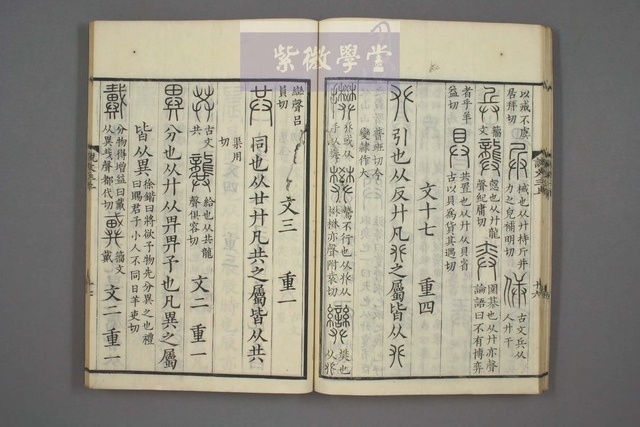 紫微學堂
以戒不虞居拜切 兵 械也从廾持斤并力之皃補明切 𠈮 古文兵从人廾干
兵 籀文 龏 愨也从廾龍聲紀庸切 弈 圍棊也从廾亦聲論語曰不有博弈
者乎羊益切 具 共置也从廾从貝省古以貝爲貨其遇切
文十七 重四
𠬜 引也从反廾凡𠬜之屬皆从𠬜
普班切今變隸作大
𠬜或从手从樊 樊 騺不行也从𠬜从棥棥亦聲附袁切 奱 樊也从𠬜
䜌聲呂員切
文三 重一
共 同也从廿廾凡共之屬皆从共
渠用切
古文共 龔 給也从共龍聲俱容切 文二 重一
異 分也从廾从畀畀予也凡異之屬
皆从異 徐鍇曰將欲予物先分異之也禮曰賜君子小人不同日羊吏切
戴 分物得增益曰戴从異𢦏聲都代切 戴 籀文戴 文二 重一